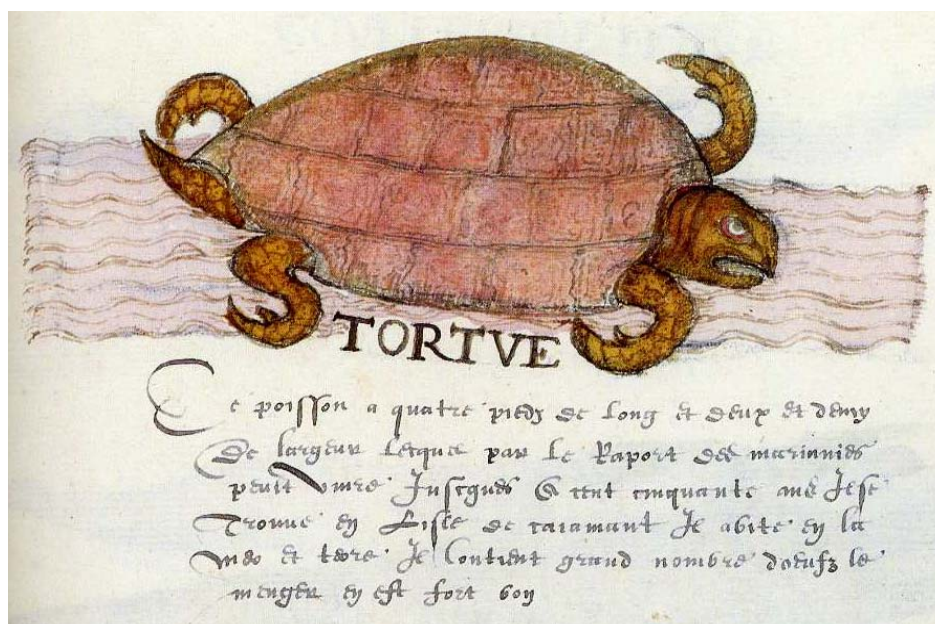 TORTVE
Ce poisson a quatre piedz de long et deux et demy
de largeur lequel par le Raport des mariniers
peult vivre Jusques a cent cinquante ans Jl se
trouve en Lisle de caiamant Jl abite en la
mer et terre Jl contient grand nombre doeufz le
menger en est fort bon